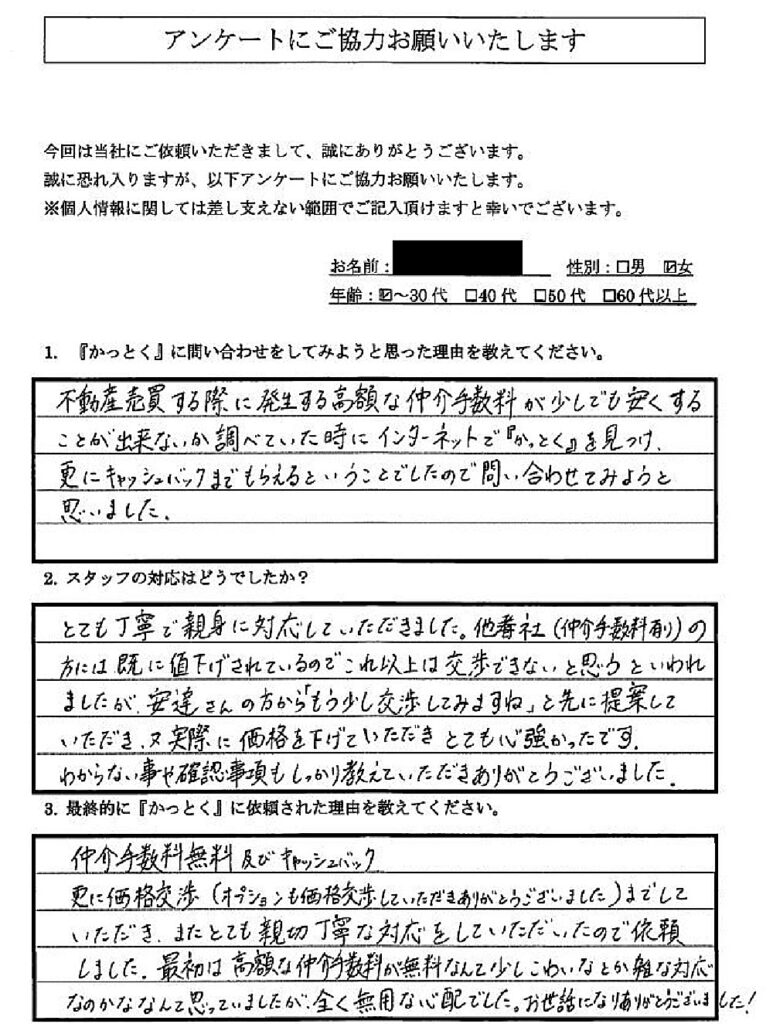 アンケートにご協力お願いいたします
今回は当社にご依頼いただきまして、誠にありがとうございます。
誠に恐れ入りますが、以下アンケートにご協力お願いいたします。
※個人情報に関しては差し支えない範囲でご記入頂けますと幸いでございます。
お名前： 性別：□男 ☑女
年齢：☑～30代 □40代 □50代 □60代以上
1. 『かっとく』に問い合わせをしてみようと思った理由を教えてください。
不動産売買する際に発生する高額な仲介手数料が少しでも安くする
ことが出来ないか調べていた時にインターネットで『かっとく』を見つけ、
更にキャッシュバックまでもらえるということでしたので問い合わせてみようと
思いました。
2. スタッフの対応はどうでしたか？
とても丁寧で親身に対応していただきました。他社(仲介手数料有り)の
方には既に値下げされているのでこれ以上は交渉できないと思うといわれ
ましたが、安達さんの方から「もう少し交渉してみますね」と先に提案して
いただき、又実際に価格を下げていただきとても心強かったです。
わからない事や確認事項もしっかり教えていただきありがとうございました。
3. 最終的に『かっとく』に依頼された理由を教えてください。
仲介手数料無料及びキャッシュバック
更に価格交渉(オプションも価格交渉していただきありがとうございました)までして
いただき、またとても親切丁寧な対応をしていただいたので依頼
しました。最初は高額な仲介手数料が無料なんて少しこわいなとか雑な対応
なのかななんて思っていましたが、全く無用な心配でした。お世話になりありがとうございました！